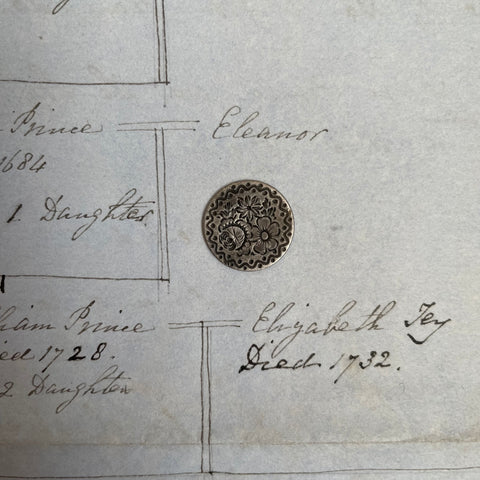 Prince Eleanor
1684
1. Daughter
liam Prince Elizabeth Tey
ied 1728. Died 1732.
2 Daughter